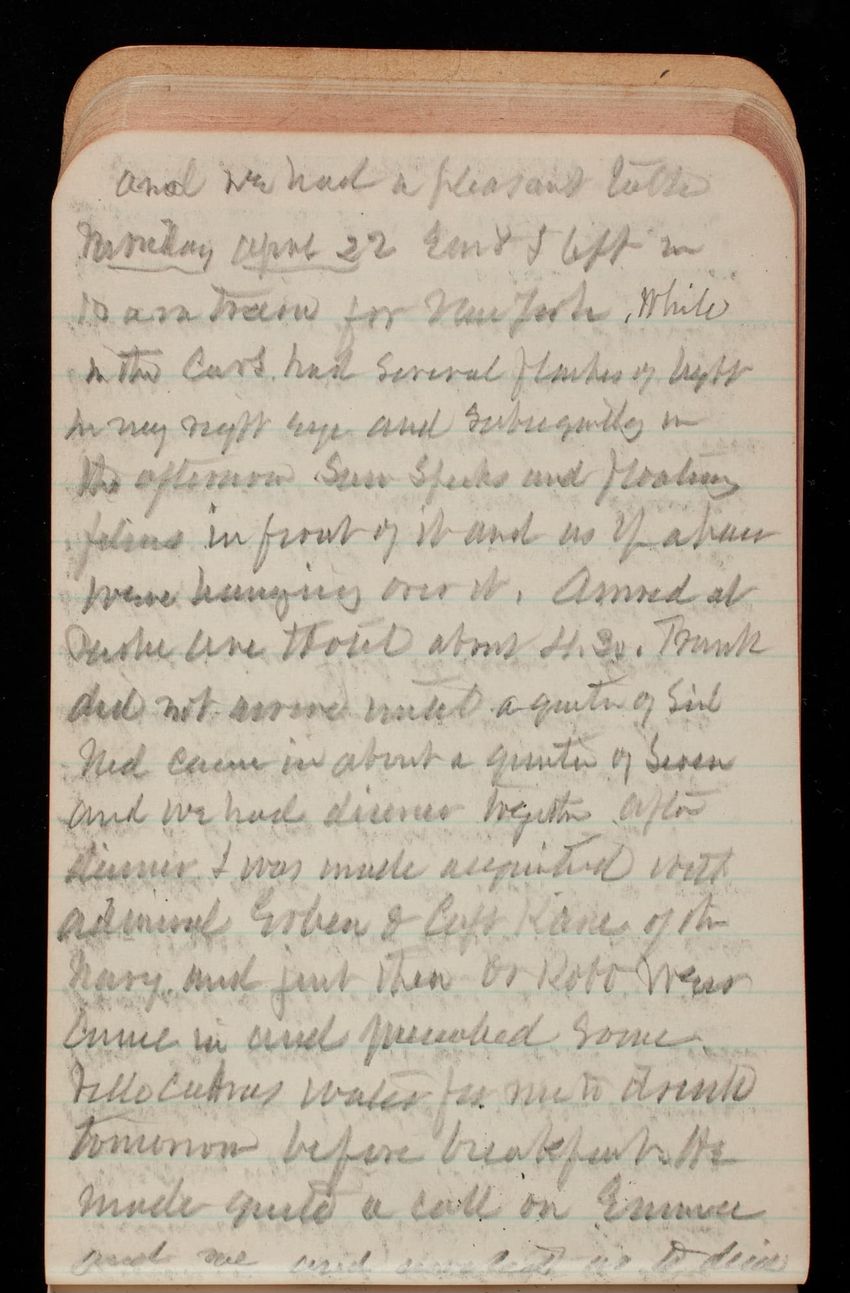 and we had a pleasant talk
Monday April 22 Em & I left in
10 a m train for New York. While
in the Cars had several flashes of light
in my right eye and subsequently in
the afternoon saw specks and floating
films in front of it and as if a hair
were hanging over it. Arrived at
Park Ave Hotel about 4.30. Trunk
did not arrive until a quarter of Six
Ned came in about a quarter of Seven
and we had dinner together after
dinner I was made acquainted with
Admiral Erben & Capt Kane of the
Navy. and just then Dr Robt Weir
came in and prescribed some
water for me to drink
tomorrow before breakfast. He
made quite a call on Emma
and me and invited us to dine